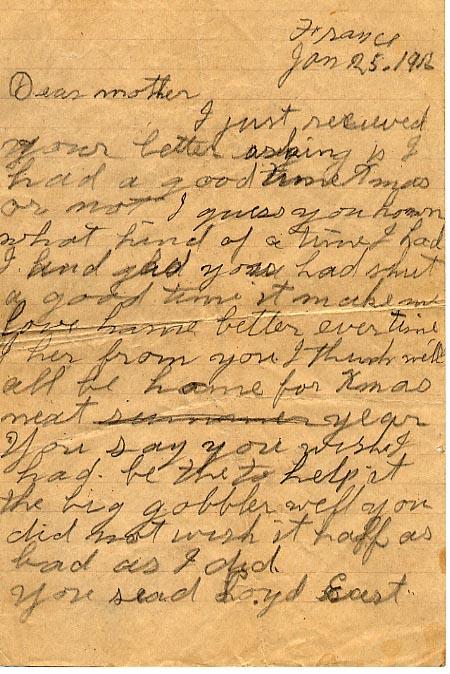 France
Jan 25. 191
Dear mother
I just recieved
your letter asking is I
had a good time Xmas
or not I guess you known
what kind of a time I had
I and glad you had
a good time it make me
love home better ever time
I her from you I think will
all be home for Xmas
neat summer year
You say you wish I
had be the to help it
the big gobbler well you
did not wish it half as
bad as I did.
You Loyd East.